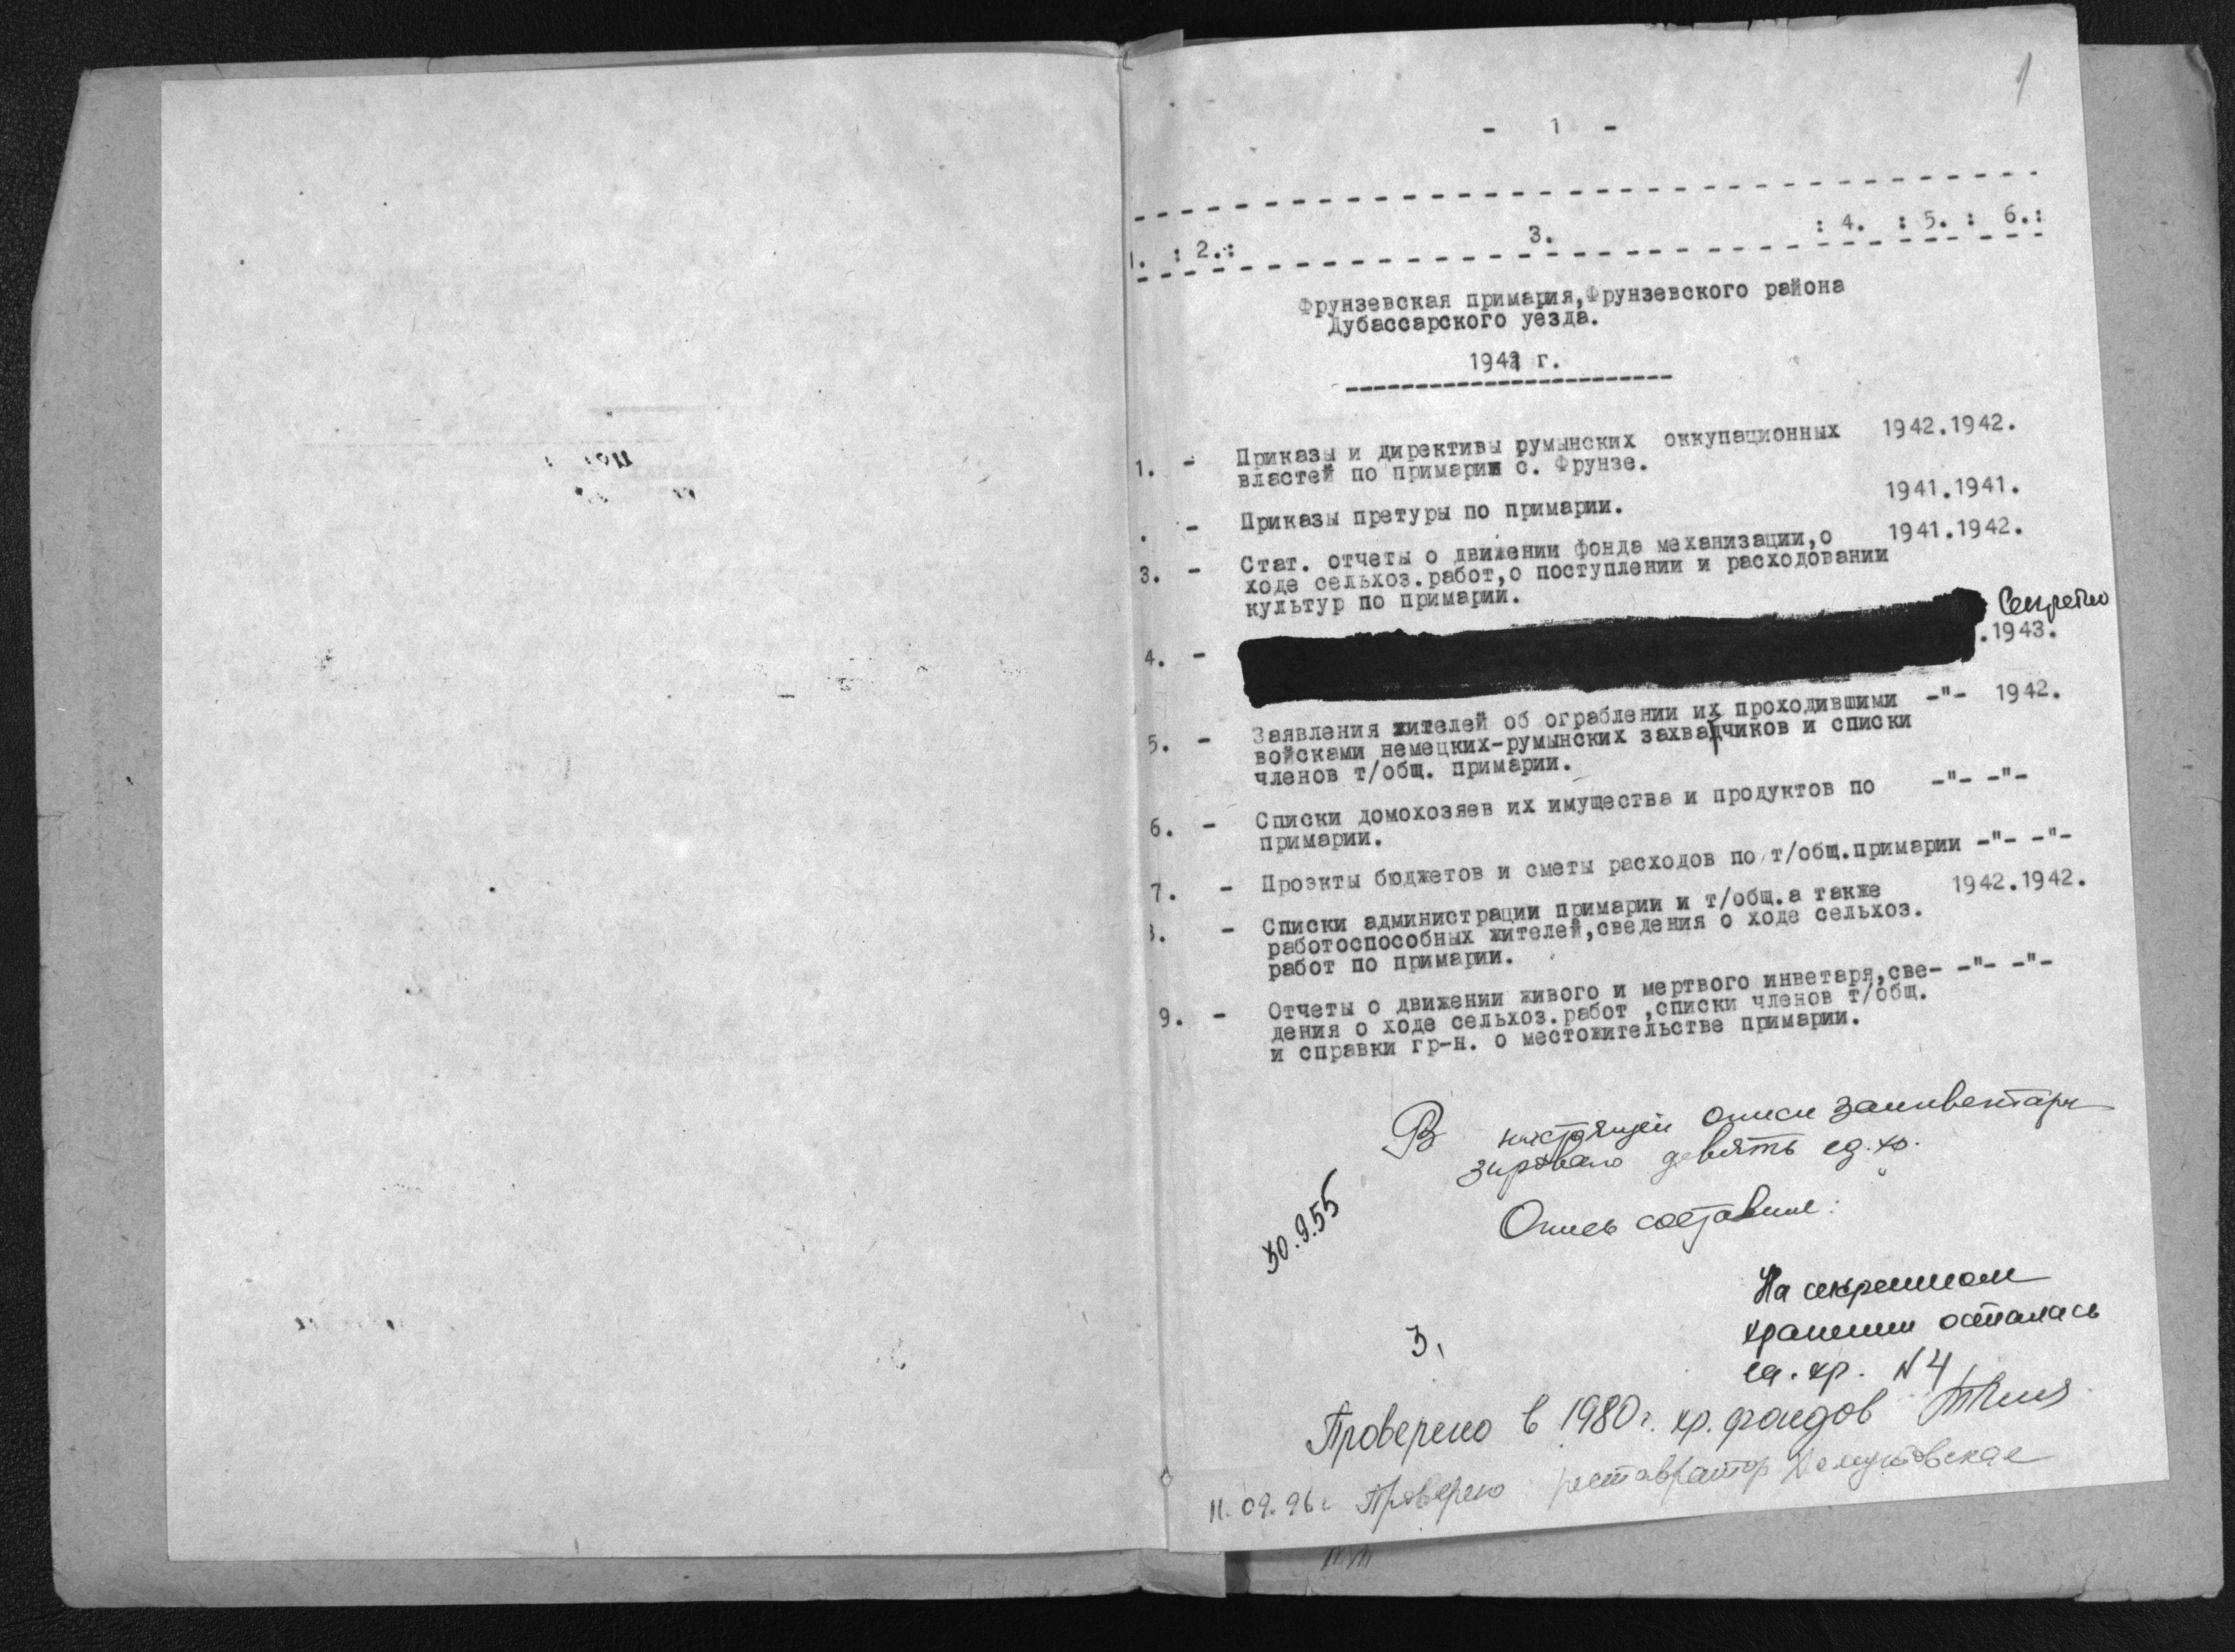 1
- 1 -
1. : 2.: 3. : 4. : 5. : 6.:
Фрунзевская примария,Фрунзевского района
Дубассарского уезда.
1941 г.
1. - Приказы и директивы румынских оккупационных 1942.1942.
властей по примарии с. Фрунзе.
. - Приказы претуры по примарии. 1941.1941.
3. - Стат. отчеты о движении фонда механизации,о 1941.1942.
ходе сельхоз.работ,о поступлении и расходовании
культур по примарии.
Секретно
4. - .1943.
5. - Заявления жителей об ограблении их проходившими -"- 1942.
войсками немецких-румынских захватчиков и списки
членов т/общ. примарии.
6. - Списки домохозяев их имущества и продуктов по -"- -"-
примарии.
7. - Проэкты бюджетов и сметы расходов по т/общ.примарии -"- -"-
8. - Списки администрации примарии и т/общ.а также 1942.1942.
работоспособных жителей,сведения о ходе сельхоз.
работ по примарии.
9. - Отчеты о движении живого и мертвого инветаря,све- -"- -"-
дения о ходе сельхоз.работ ,списки членов т/общ.
и справки гр-н. о местожительстве примарии.
В настоящей описи заинвентари
зировано девять ед.хр.
30.9.55
Опись составил:
На секретном
хранении осталась
ед. хр. N4
3.
Проверено в 1980г. хр. фондов
11.09.96г Проверено реставратор